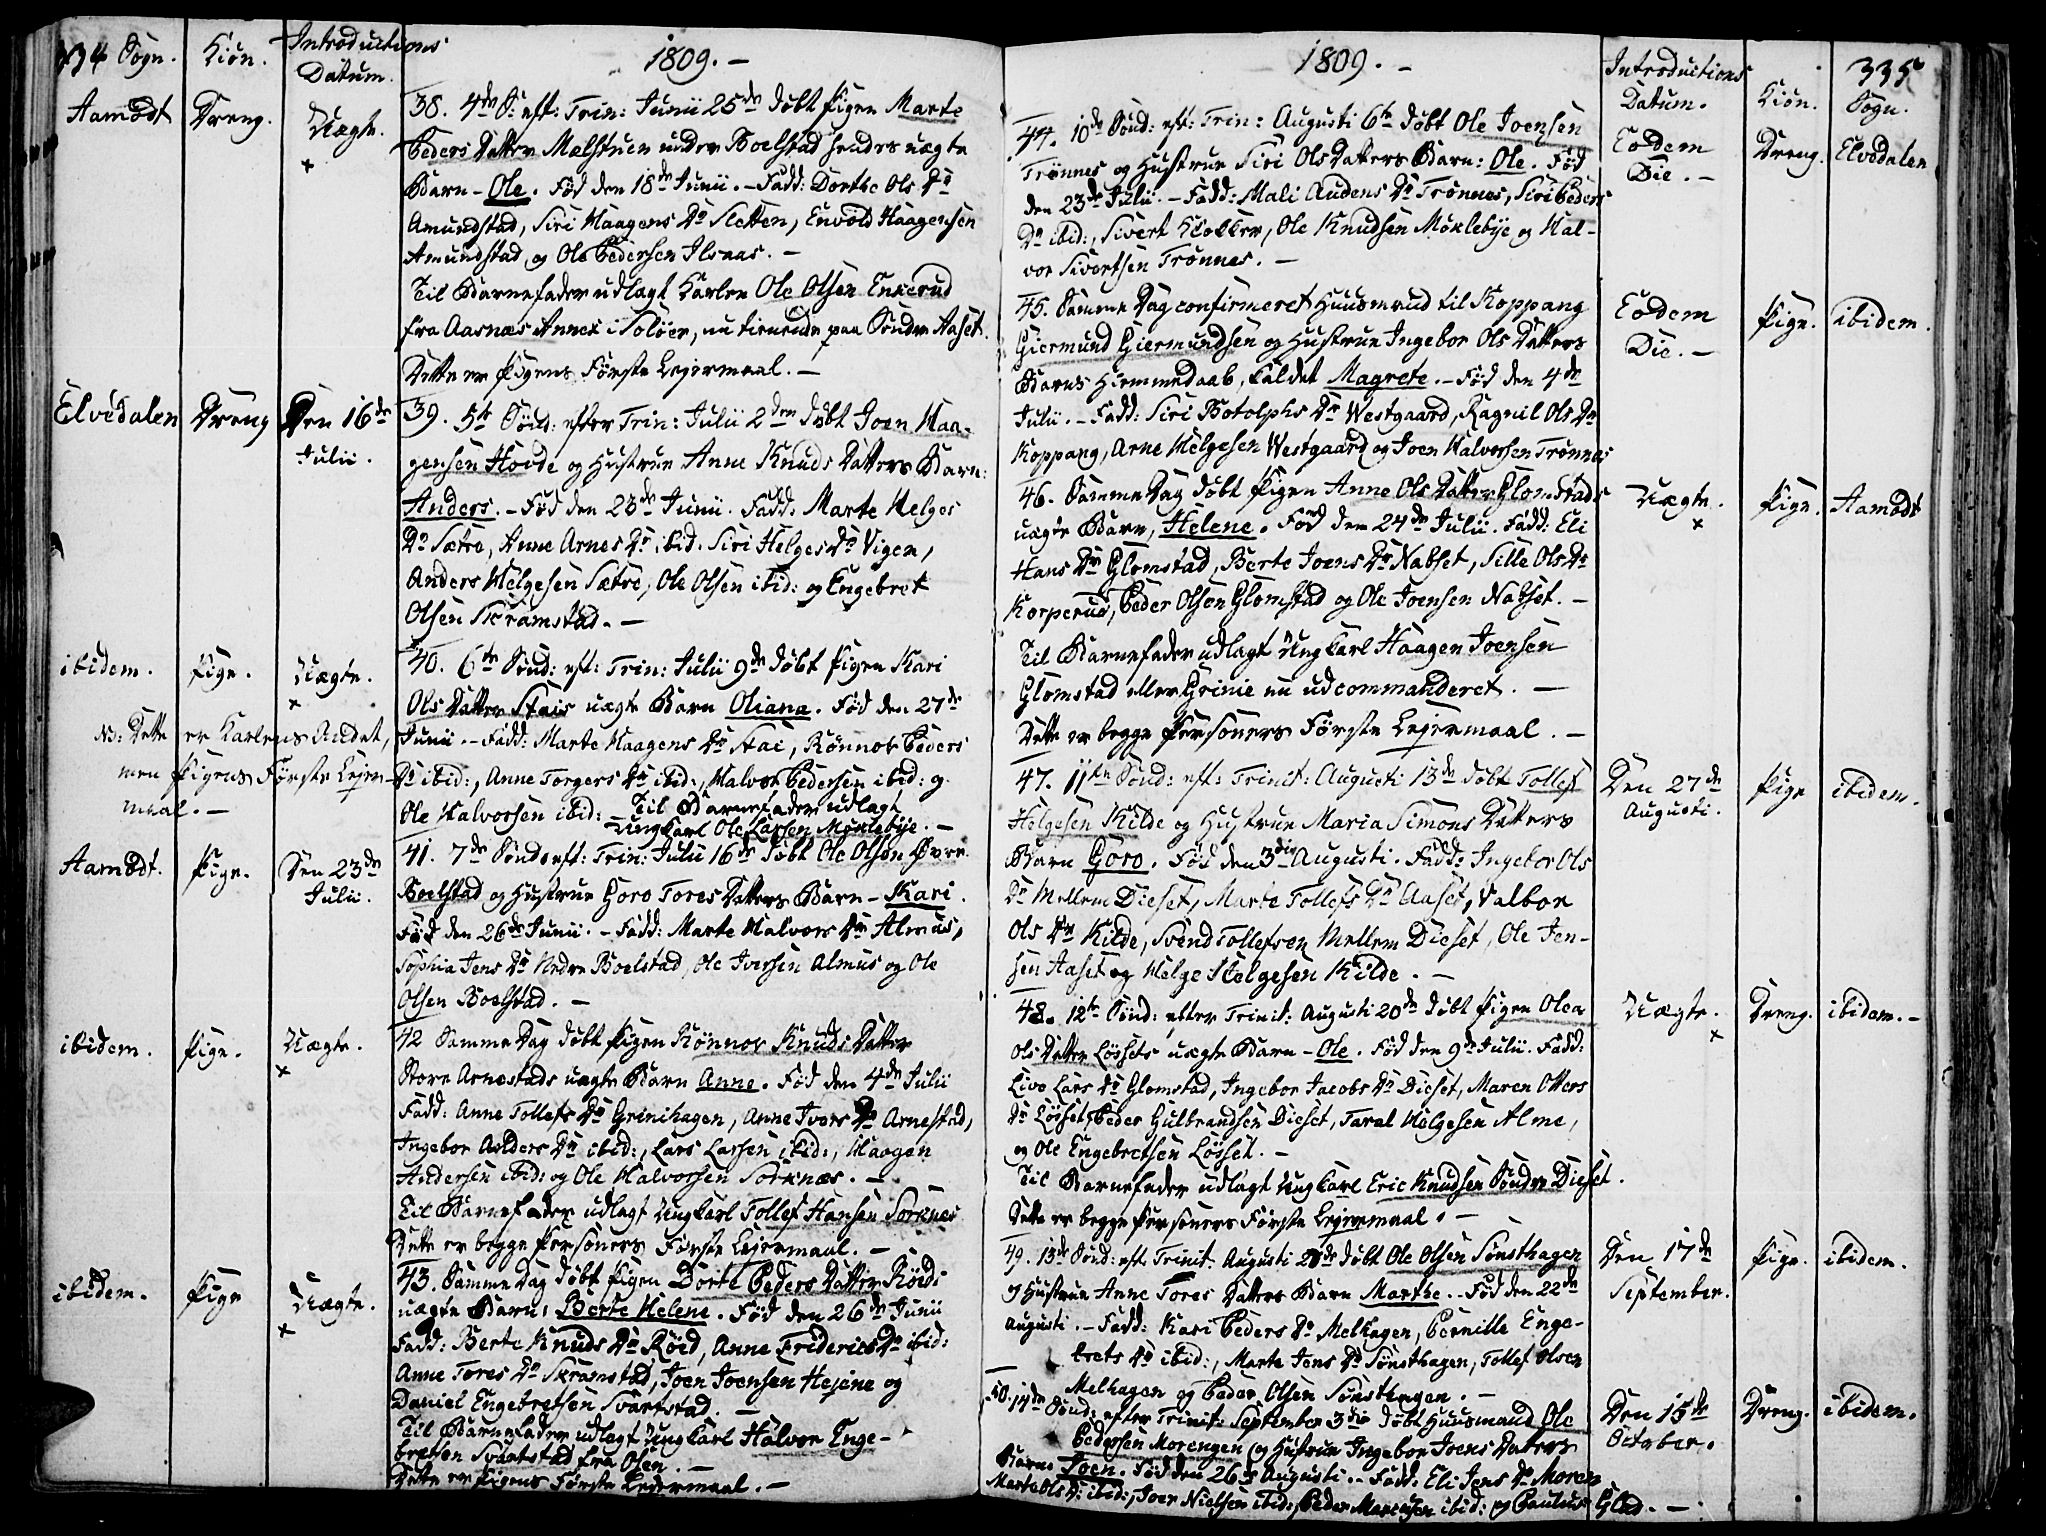 334 Sogn. Kiön. Introductions Datum. 1809. -
Aamodt Dreng. Uægte. x
38. 4de S: eft: Trin: Junii 25de døbt Pigen Marte
Peders Datter Mælstuen under Boelstad hendes uægte
Barn - Ole. Fød den 18de Junii. - Fadd: Dorthe Ols Dr
Amundstad, Siri Haagens Dr Sletten, Envold Haagensen
Amundstad og Ole Pedersen Ilsaas. -
Til Barnefader udlagt Karlen Ole Olsen Enkerud
fra Aasnæs Annex i Soløer, nu tienende paa Søndre Aaset.
Dette er Pigens Første Lejermaal. -
Elvedalen Dreng Den 16de Julii.
39. 5te Sönd: efter Trin: Julii 2den døbt Joen Haa-
gensen Hovde og Hustrue Anne Knuds Datters Barn:
Anders. - Fød den 23de Junii. Fadd: Marte Helges
Dr Sætre, Anne Arnes Dr ibid. Siri Helges Dr Vigen,
Anders Helgesen Sætre, Ole Olsen ibid: og Engebret
Olsen Skramstad. -
ibidem. Pige. Uægte. x
40. 6te Sönd: eft: Trin: Julii 9de døbt Pigen Kari
Ols Datter Stais uægte Barn Oliana. Fød den 27de
Junii. - Fadd: Marte Haagens Dr Stai, Rønnov Peders
Dr ibid:, Anne Torgers Dr ibid:, Halvor Pedersen ibid: og
Ole Halvorsen ibid: - Til Barnefader udlagt
Ungkarl Ole Larsen Møklebye. -
NB: Dette er Karlens Andet,
men Pigens Første Lejer-
maal. -
Aamodt. Pige. Den 23de Julii.
41. 7de Sönd: eft: Trin: Julii 16de døbt Ole Olsen Øvre
Boelstad og Hustrue Goro Tores Datters Barn - Kari.
Fød den 26de Junii. - Fadd: Marte Halvors Dr Almus,
Sophia Jens Dr Nedre Boelstad, Ole Iversen Almus og Ole
Olsen Boelstad. -
ibidem. Pige. Uægte. x
42 Samme Dag døbt Pigen Rønnov Knuds Datter
Store Arnestads uægte Barn Anne. Fød den 4de Julii
Fadd: Anne Tollefs Dr Grinihagen, Anne Ivers Dr Arnestad,
Ingebor Anders Dr ibid:, Lars Larsen ibid:, Haagen
Andersen ibid: og Ole Halvorsen Sorknæs. -
Til Barnefader udlagt Ungkarl Tollef Hansen Sorknes
Dette er begge Personers Første Lejermaal. -
ibidem. Pige Uægte. x
43. Samme Dag døbt Pigen Dorte Peders Datter Röids
uægte Barn: Berte Helene. Fød den 26de Junii
Fadd: Berte Knuds Dr Röid, Anne Friderics Dr ibid:
Anne Tores Dr Skramstad, Joen Joensen Hejene og
Daniel Engebretsen Svartstad. -
Til Barnefader udlagt Ungkarl Halvor Enge-
bretsen Svartstad fra Osen. -
Dette er Pigens Første Lejermaal. -
1809. - Introductions Datum. Kiön. 335 Sogn.
44. 10de Sönd: eft: Trin: Augusti 6te døbt Ole Joensen
Trønnes og Hustrue Siri Ols Datters Barn: Ole. Fød
den 23de Julii. - Fadd: Mali Audens Dr Trønnes, Siri Peders
Dr ibid:, Sivert Klokker, Ole Knudsen Møklebye og Hal-
vor Sivertsen Trønnes. -
Eodem Die. - Dreng. Elvedalen
45. Samme Dag confirmeret Huusmand til Koppang
Giermund Giermundsen og Hustrue Ingebor Ols Datters
Barns Hiemmedaab, kaldet Magrete. - Fød den 4de
Julii. - Fadd: Siri Botolphs Dr Westgaard, Ragnil Ols Dr
Koppang, Arne Helgesen Westgaard og Joen Halvorsen Trønnes
Eodem Die. - Pige. ibidem.
46. Samme Dag døbt Pigen Anne Ols Datter Glomstads
uægte Barn, Helene. Fød den 24de Julii. Fadd: Eli
Hans Dr Glomstad, Berte Joens Dr Nabset, Sille Ols Dr
Korperud, Peder Olsen Glomstad og Ole Joensen Nabset. -
Til Barnefader udlagt Ungkarl Haagen Joensen
Glomstad eller Grinie nu udcommanderet. -
Dette er begge Personers Første Lejermaal. -
Uægte. x Pige. Aamodt
47. 11te Sönd: eft: Trinit: Augusti 13de døbt Tollef
Helgesen Kilde og Hustrue Maria Simons Datters
Barn Goro. Fød den 3die Augusti. Fadd: Ingebor Ols
Dr Mellem Dieset, Marte Tollefs Dr Aaset, Valbor
Ols Dr Kilde, Svend Tollefsen Mellem Dieset, Ole Jen-
sen Aaset og Helge Helgesen Kilde. -
Den 27de Augusti. Pige ibidem.
48. 12te Sönd: efter Trinit: Augusti 20de døbt Pigen Olea
Ols Datter Løssets uægte Barn - Ole. Fød den 9de Julii. Fadd:
Live Lars Dr Glomstad, Ingebor Jacobs Dr Dieset, Maren Otters
Dr Løsset, Peder Gulbrandsen Dieset, Taral Helgesen Alme,
og Ole Engebretsen Løsset. -
Til Barnefader udlagt Ungkarl Eric Knudsen Søndre Dieset.
Dette er begge Personers Første Lejermaal. -
Uægte. x Dreng. ibidem. -
49. 13de Sönd: eft: Trinit. Augusti 27de døbt Ole Olsen Sønsthagen
og Hustrue Anne Tores Datters Barn Marthe. - Fød den 22de
Augusti. - Fadd: Kari Peders Dr Melhagen, Pernille Enge-
brets Dr ibid:, Marte Jens Dr Sønsthagen, Tollef Olsen
Melhagen og Peder Olsen Sønsthagen. -
Den 17de September. Pige. ibidem.
50. 14de Sönd: efter Trinit: September 3die døbt Huusmand Ole
Pedersen Morengen og Hustrue Ingebor Joens Datters
Barn: Joen. Fød den 26de Augusti. - Fadd: Eli Jens Dr Moren
Marte Ols Dr ibid:, Joen Nielsen ibid: Peder Mortensen ibid: og Paulus Glad. -
Den 15de October. Dreng. ibidem.